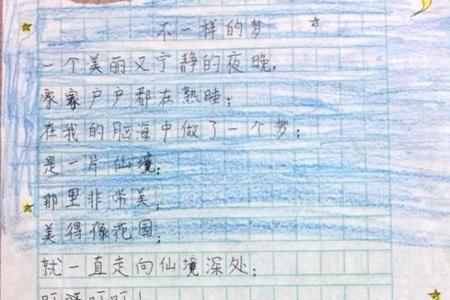 不一样的梦
一个美丽又宁静的夜晚，
家家户户都在熟睡；
在我的脑海中做了一个梦；
是一片仙境；
那里非常美，
美得像花园；
就一直走向仙境深处；